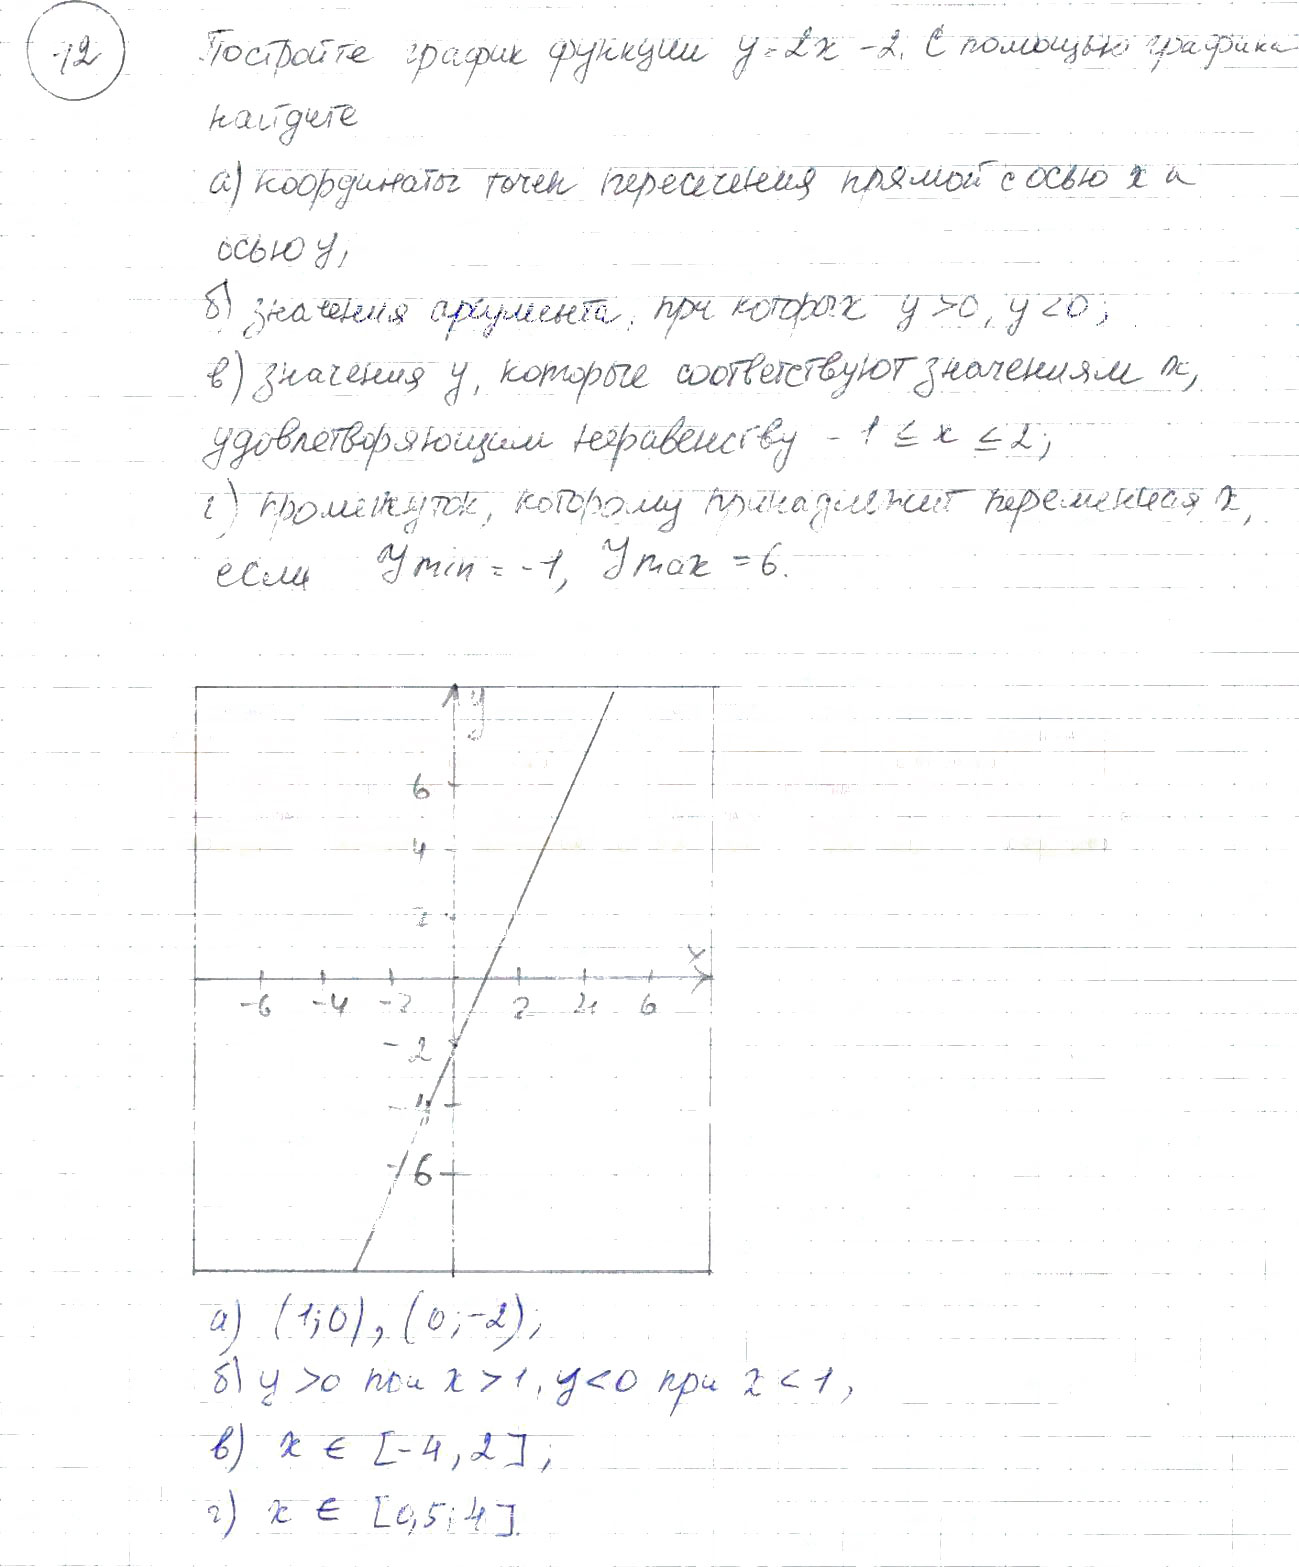 12
Постройте график функции y=2x-2. С помощью графика
найдите
а) координаты точек пересечения прямой с осью x и
осью y;
б) значения аргумента, при которых y>0, y<0;
в) значения y, которые соответствуют значениям x,
удовлетворяющим неравенству -1≤x≤2;
г) промежуток, которому принадлежит переменная x,
если y min=-1, y max=6.
y
6
4
2
x
-6 -4 -2 2 4 6
-2
-4
-6
а) (1;0), (0;-2);
б) y>0 при x>1, y<0 при x<1;
в) x ∈ [-4, 2];
г) x ∈ [0,5; 4].